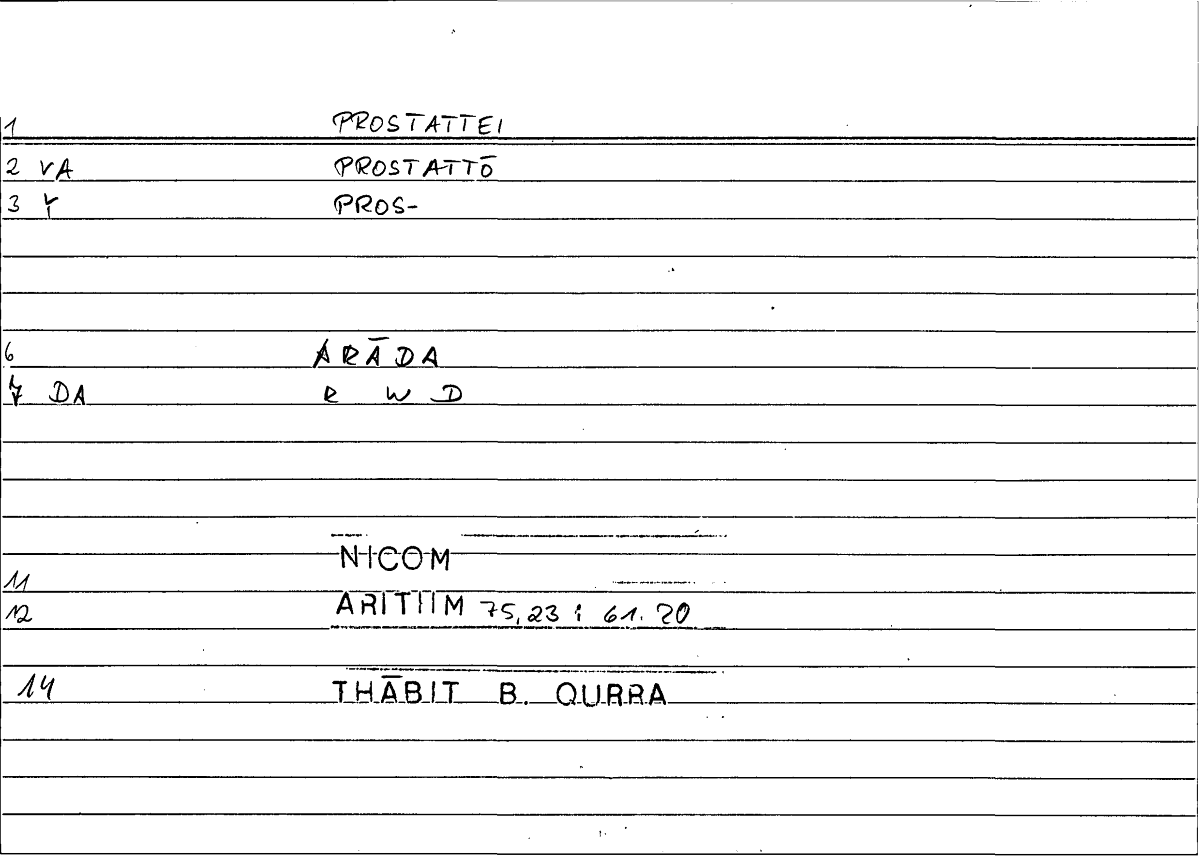 1 PROSTATTEI
2 VA PROSTATTŌ
3 Y PROS-
6 ARĀDA
7 DA R W D
NICOM
11
12 ARITHM 75,23 ; 61.20
14 THĀBIT B. QURRA